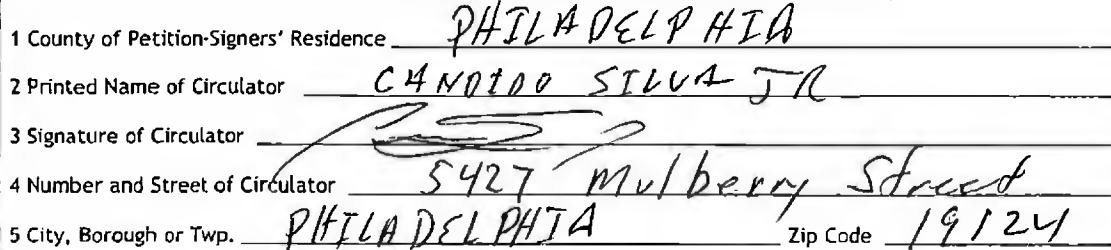 1 County of Petition-Signers' Residence PHILADELPHIA
2 Printed Name of Circulator CANDIDO SILVA JR
3 Signature of Circulator
4 Number and Street of Circulator 5427 Mulberry Street
5 City, Borough or Twp. PHILADELPHIA Zip Code 19124